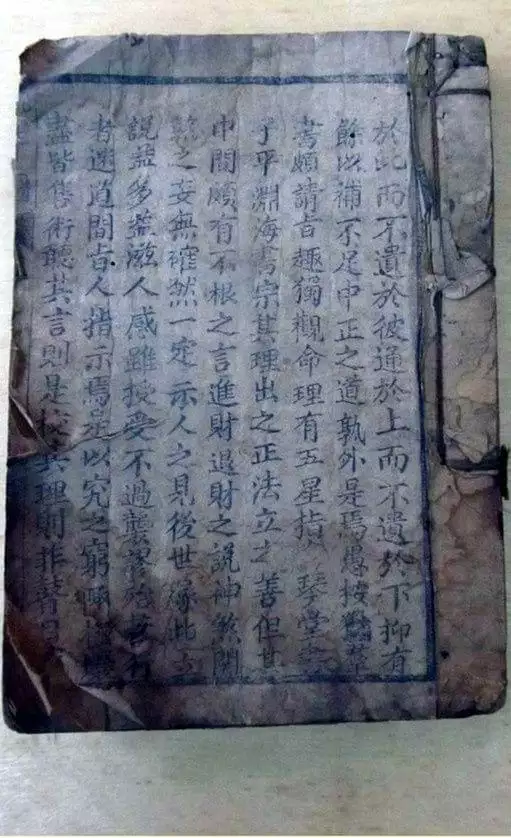 於此而不遺於彼通於上而不遺於下抑有
餘以補不足中正之道孰外是焉愚按
書頗請旨趣獨觀命理有五星指 琴堂
子平淵海書宗其理出之正法立之善但其
中間頗有不根之言進財退財之說神煞關
之妄無確然一定示人之見後世緣此
說益多益滋人惑雖授受不過襲謬
者迷道間旨人指示焉是以究之窮
盡皆售術聽其言則是 其理則非